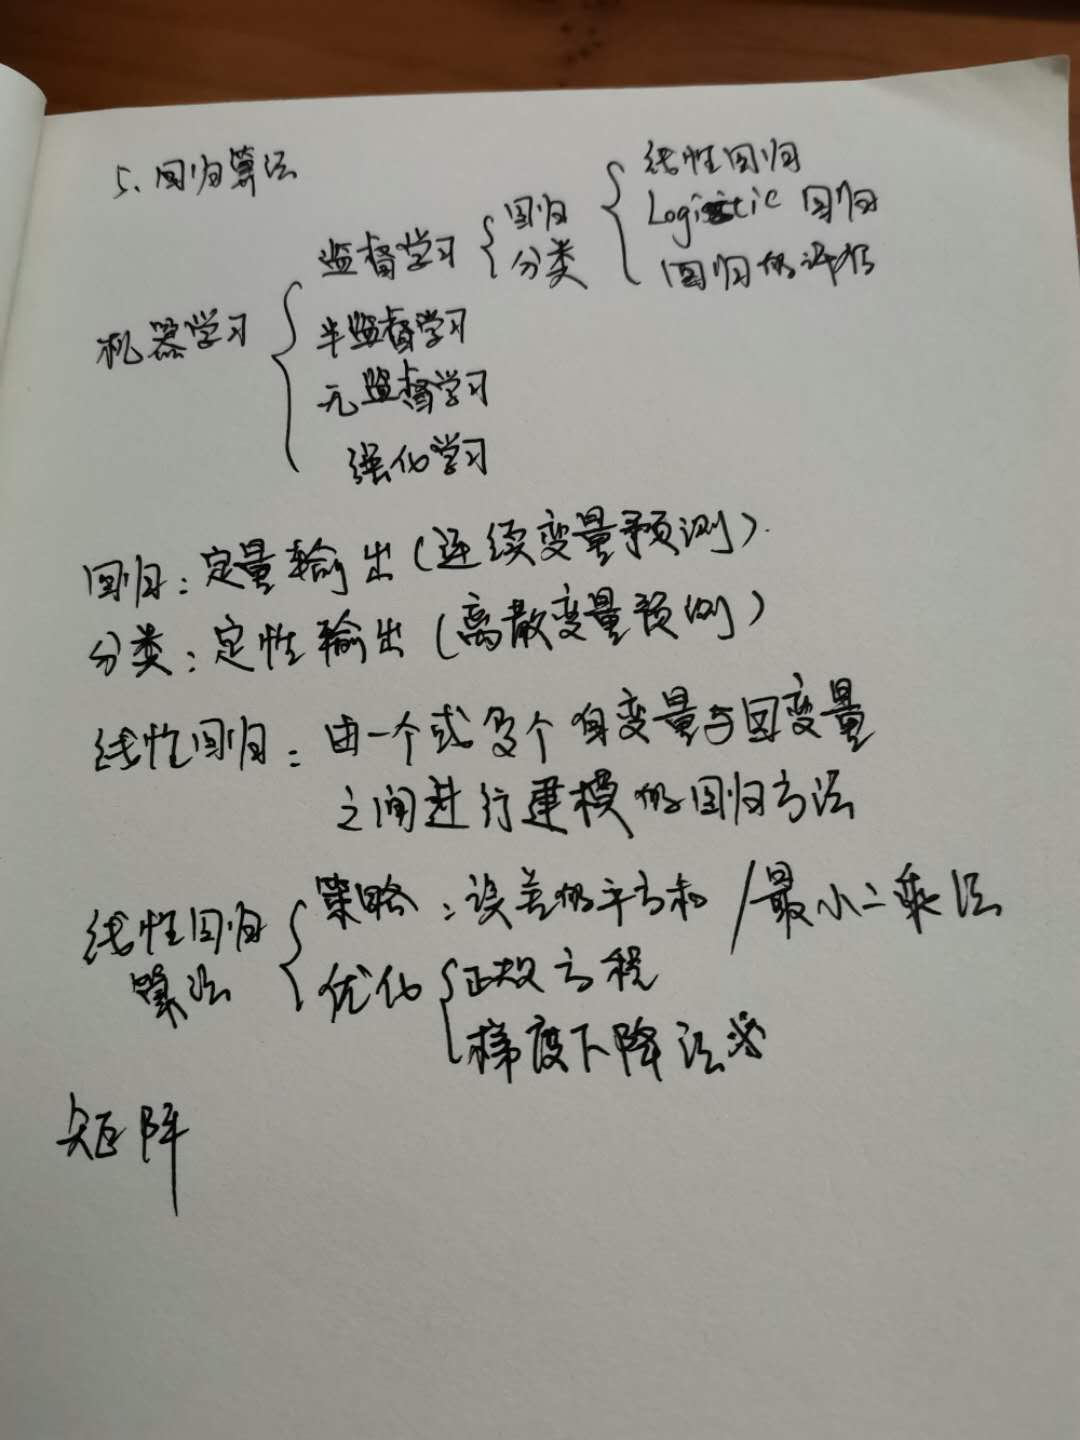 5、回归算法
机器学习
监督学习
回归
分类
线性回归
Logistic 回归
回归的评估
半监督学习
无监督学习
强化学习
回归：定量输出（连续变量预测）
分类：定性输出（离散变量预测）
线性回归：由一个或多个自变量与因变量
之间进行建模的回归方法
线性回归
算法
策略：误差的平方和 / 最小二乘法
优化
正规方程
梯度下降法
矩阵